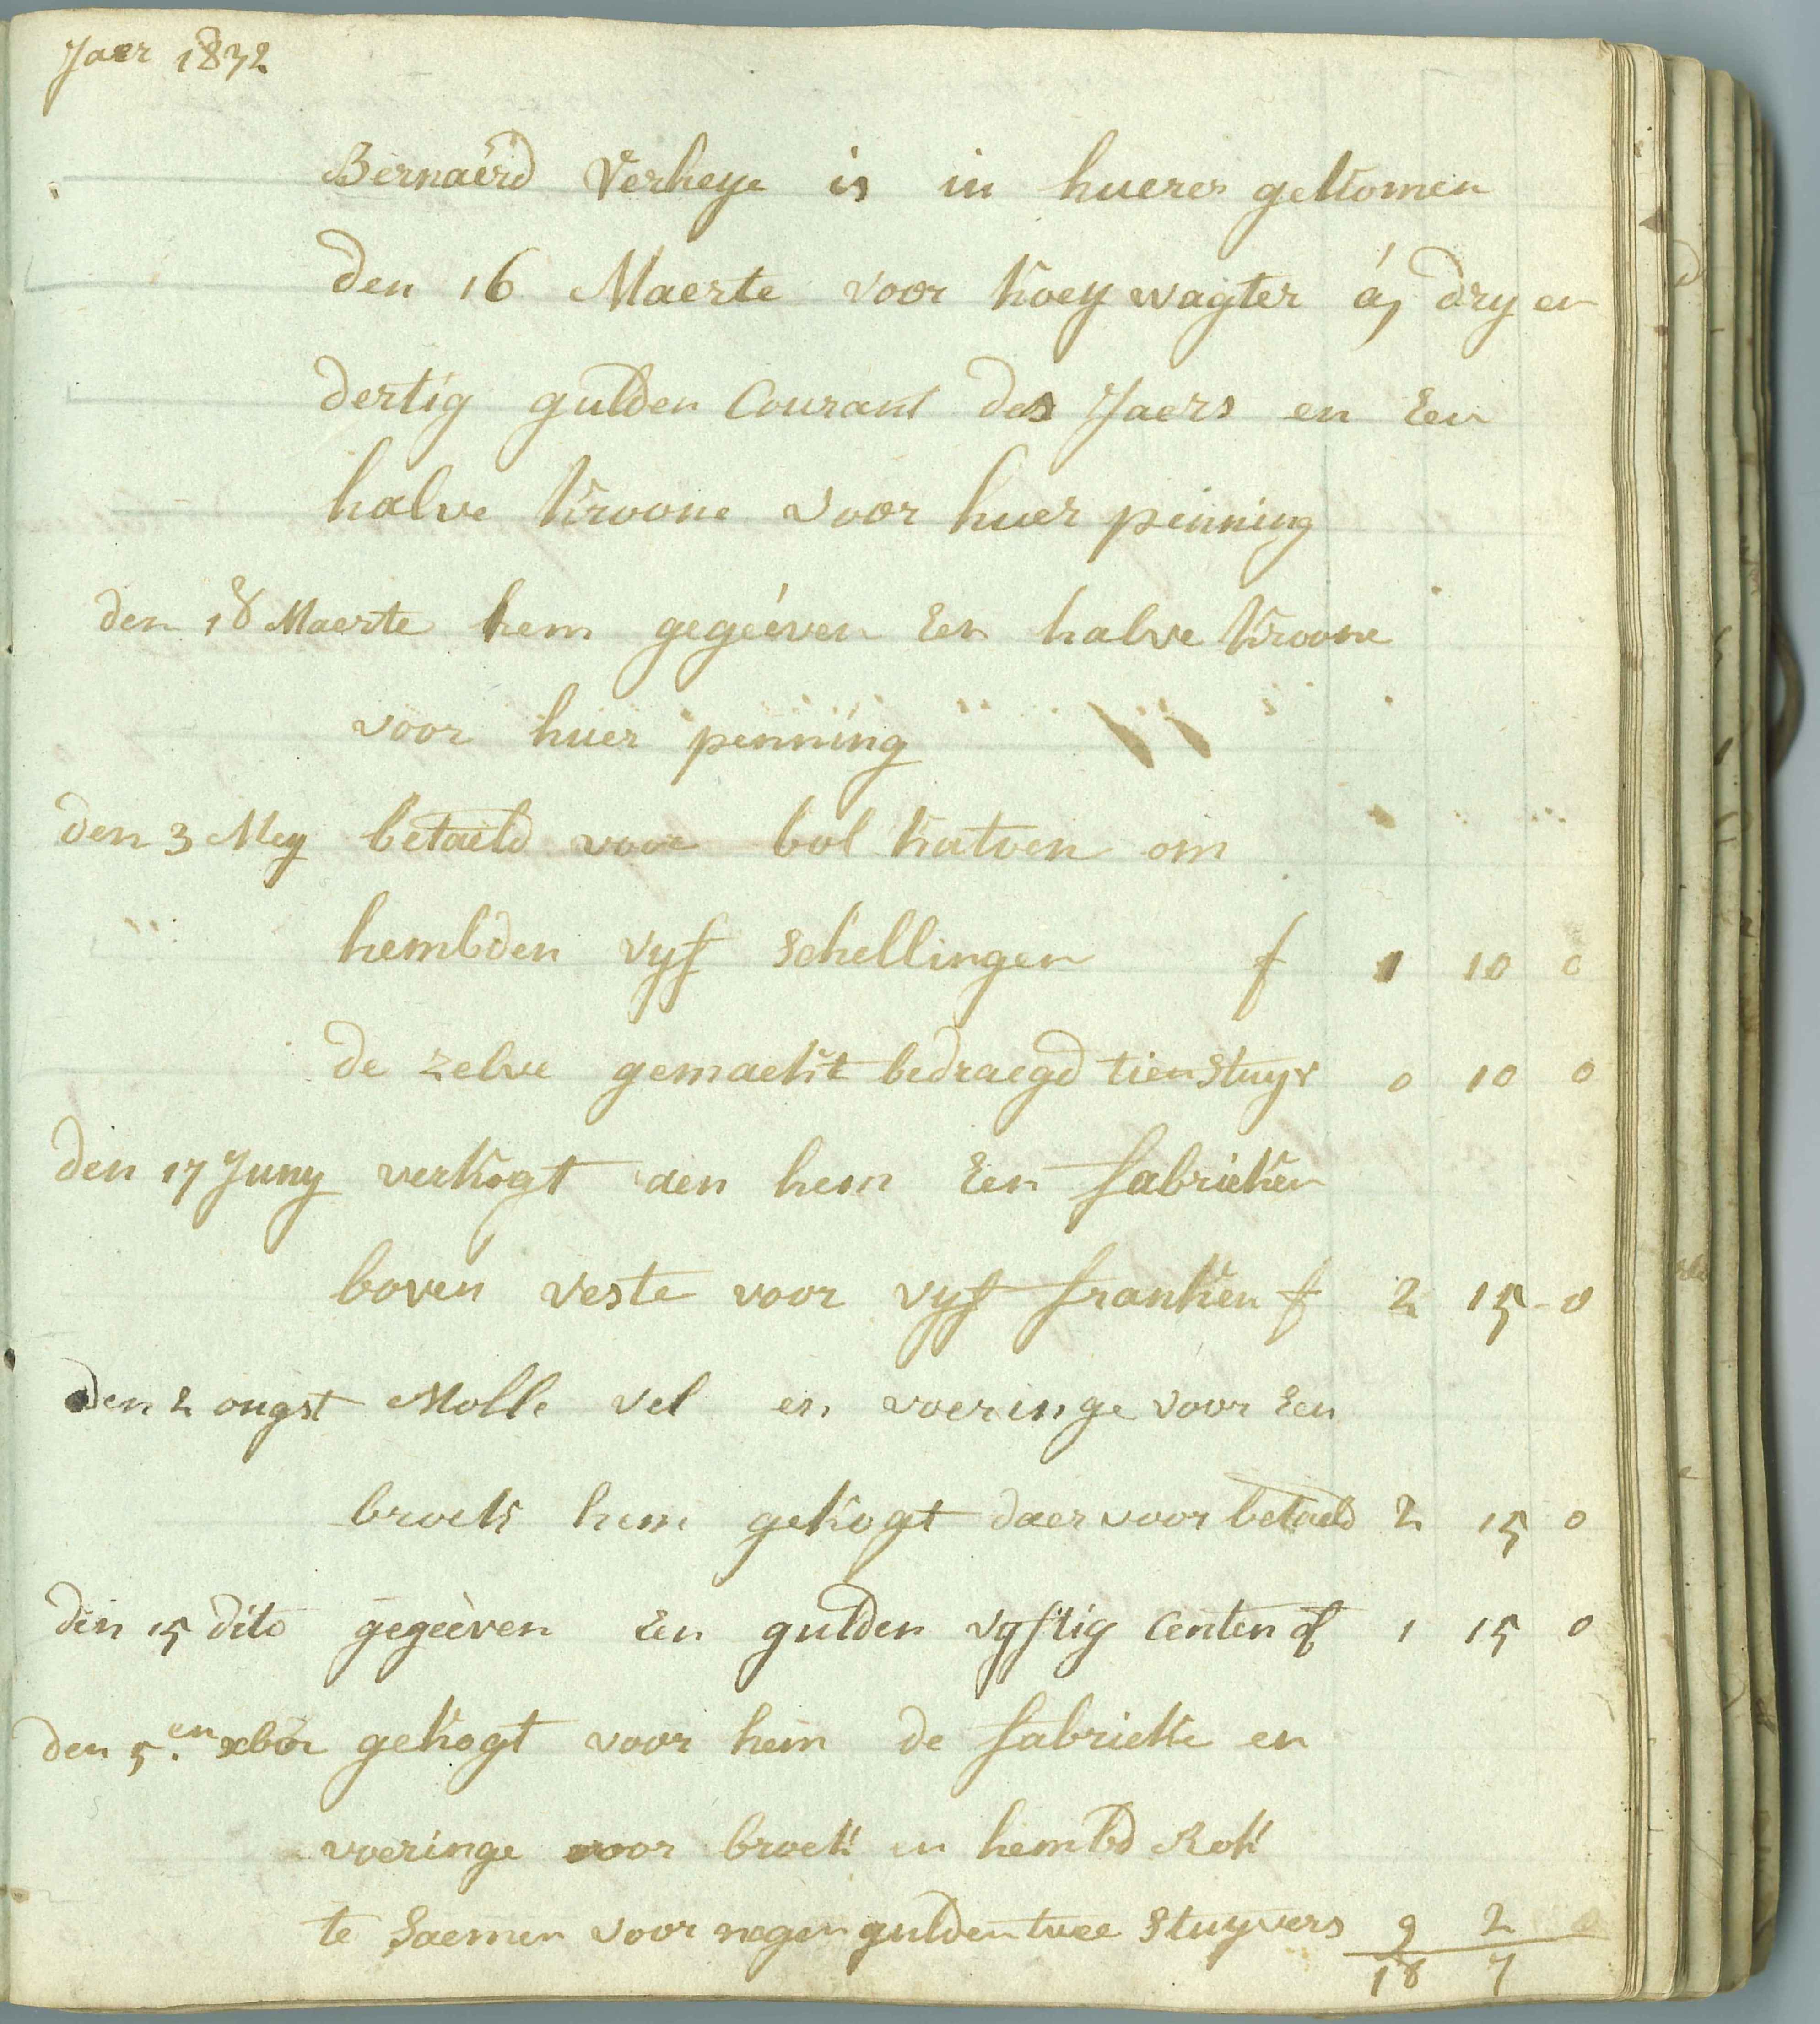 Jaer 1832
Bernaerd Verheye is in huere gekomen
den 16 Maerte voor koey wagter á dry en
dertig gulden Courant des Jaers en Een
halve kroone voor huer penning
den 18 Maerte hem gegéeven Een halve kroone
voor huer penning
den 3 Mey betaeld voor bol katoen om
hembden vyf schellingen f 1 10 0
de zelve gemaekt bedraegd tien stuyv 0 10 0
den 17 Juny verkogt aen hem Een fabrieken
boven veste voor vyf franken f 2 15 - 0
den 2 ougst Molle vel en voeringe voor Een
broek hem gekogt daer voor betaeld 2 15 0
den 15 dito gegeéven Een gulden vyftig Centen f 1 15 0
den 5.en xber gekogt voor hem de fabrieke en
voeringe voor broek en hembd Rok
te Saemen voor negen gulden twee Stuyvers 9 2 0
18 7